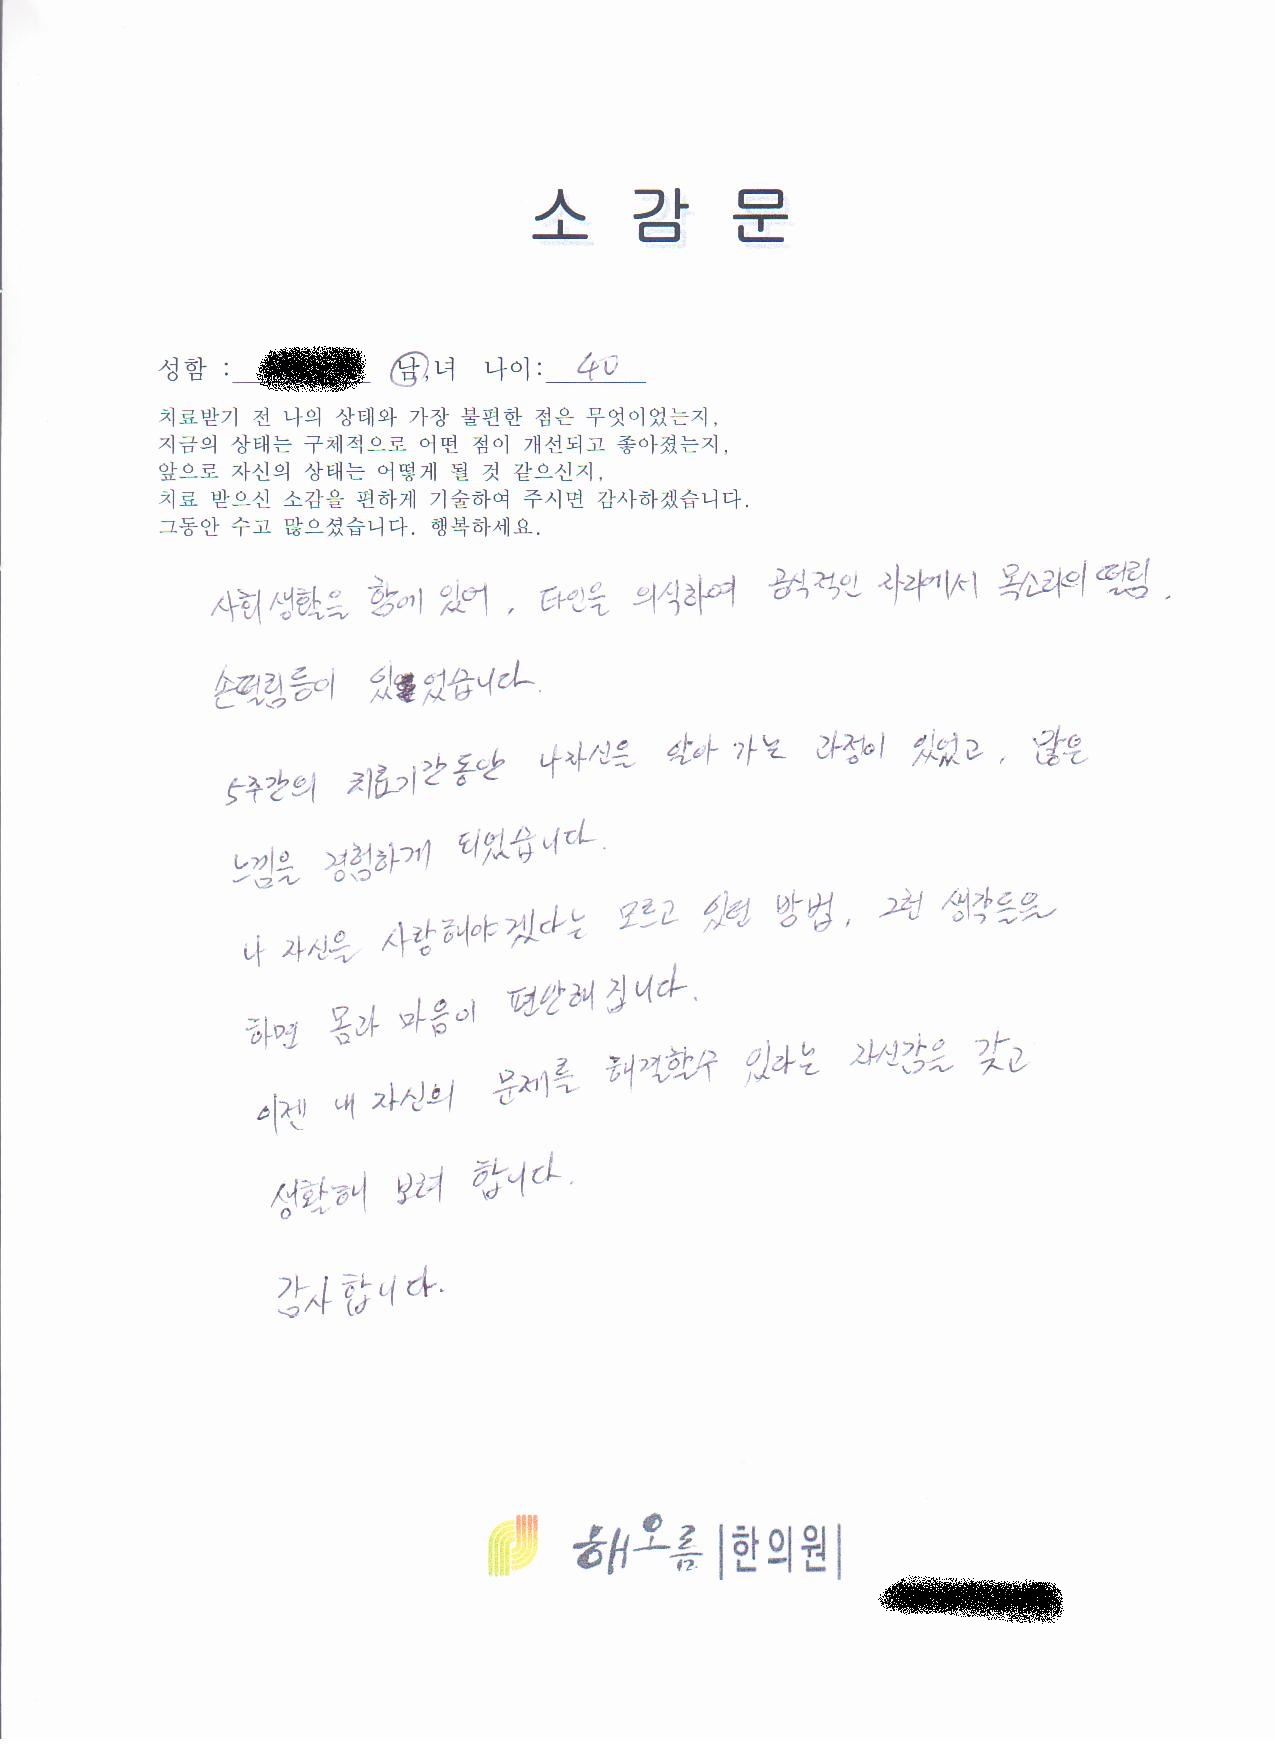 소 감 문
성함 : 남,녀 나이: 40
치료받기 전 나의 상태와 가장 불편한 점은 무엇이었는지,
지금의 상태는 구체적으로 어떤 점이 개선되고 좋아졌는지,
앞으로 자신의 상태는 어떻게 될 것 같으신지,
치료 받으신 소감을 편하게 기술하여 주시면 감사하겠습니다.
그동안 수고 많으셨습니다. 행복하세요.
사회생활을 함에 있어, 타인을 의식하여 공식적인 자리에서 목소리의 떨림,
손떨림등이 있었습니다.
5주간의 치료기간동안 나자신을 알아 가는 과정이 있었고, 많은
느낌을 경험하게 되었습니다.
나 자신을 사랑해야겠다는 모르고 있던 방법, 그런 생각들을
하면 몸과 마음이 편안해 집니다.
이젠 내 자신의 문제를 해결할수 있다라는 자신감을 갖고
생활해 보려 합니다.
감사합니다.
해오름|한의원|